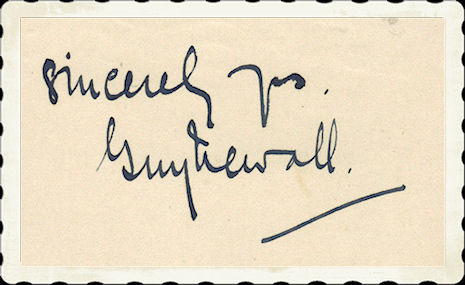 Sincerely yrs.
Guy Newall.